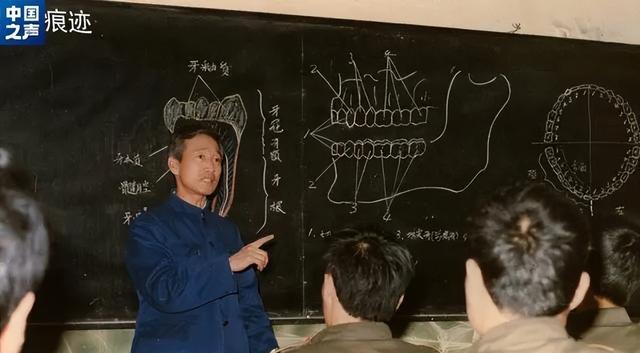 中国之声
痕迹
牙釉质
牙本质
髓腔
牙冠
牙颈
牙根
2 3 4
1
2 3 4
1. 切
3.
左